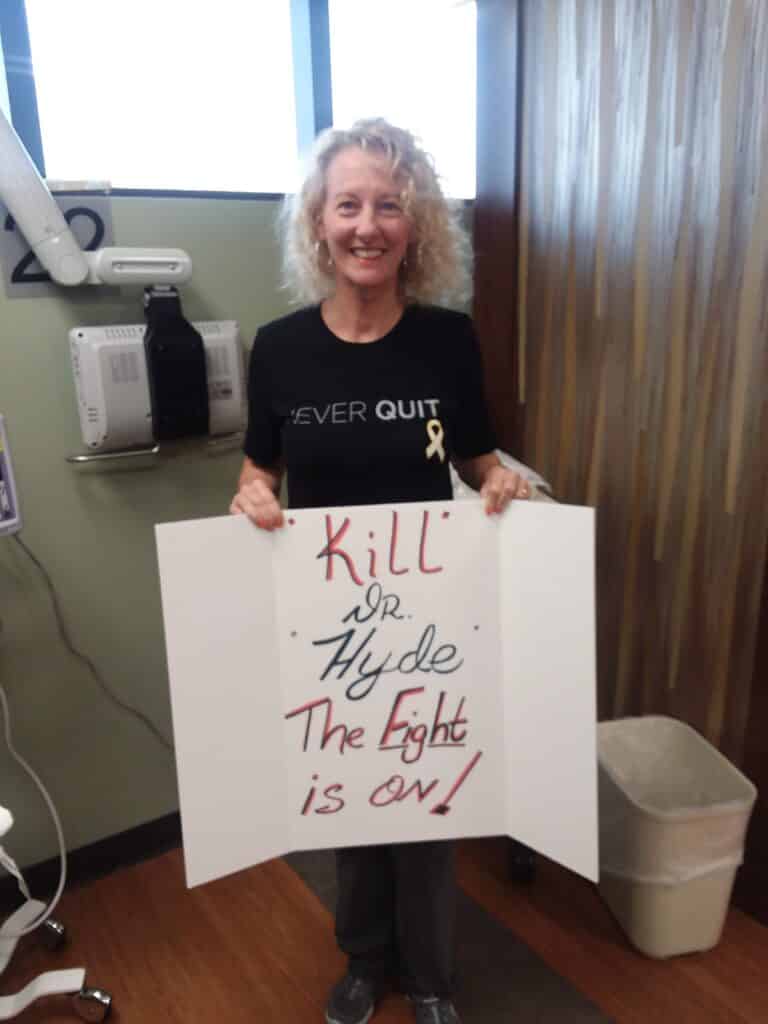 22
NEVER QUIT
"Kill"
DR.
"Hyde"
The Fight
is ON!